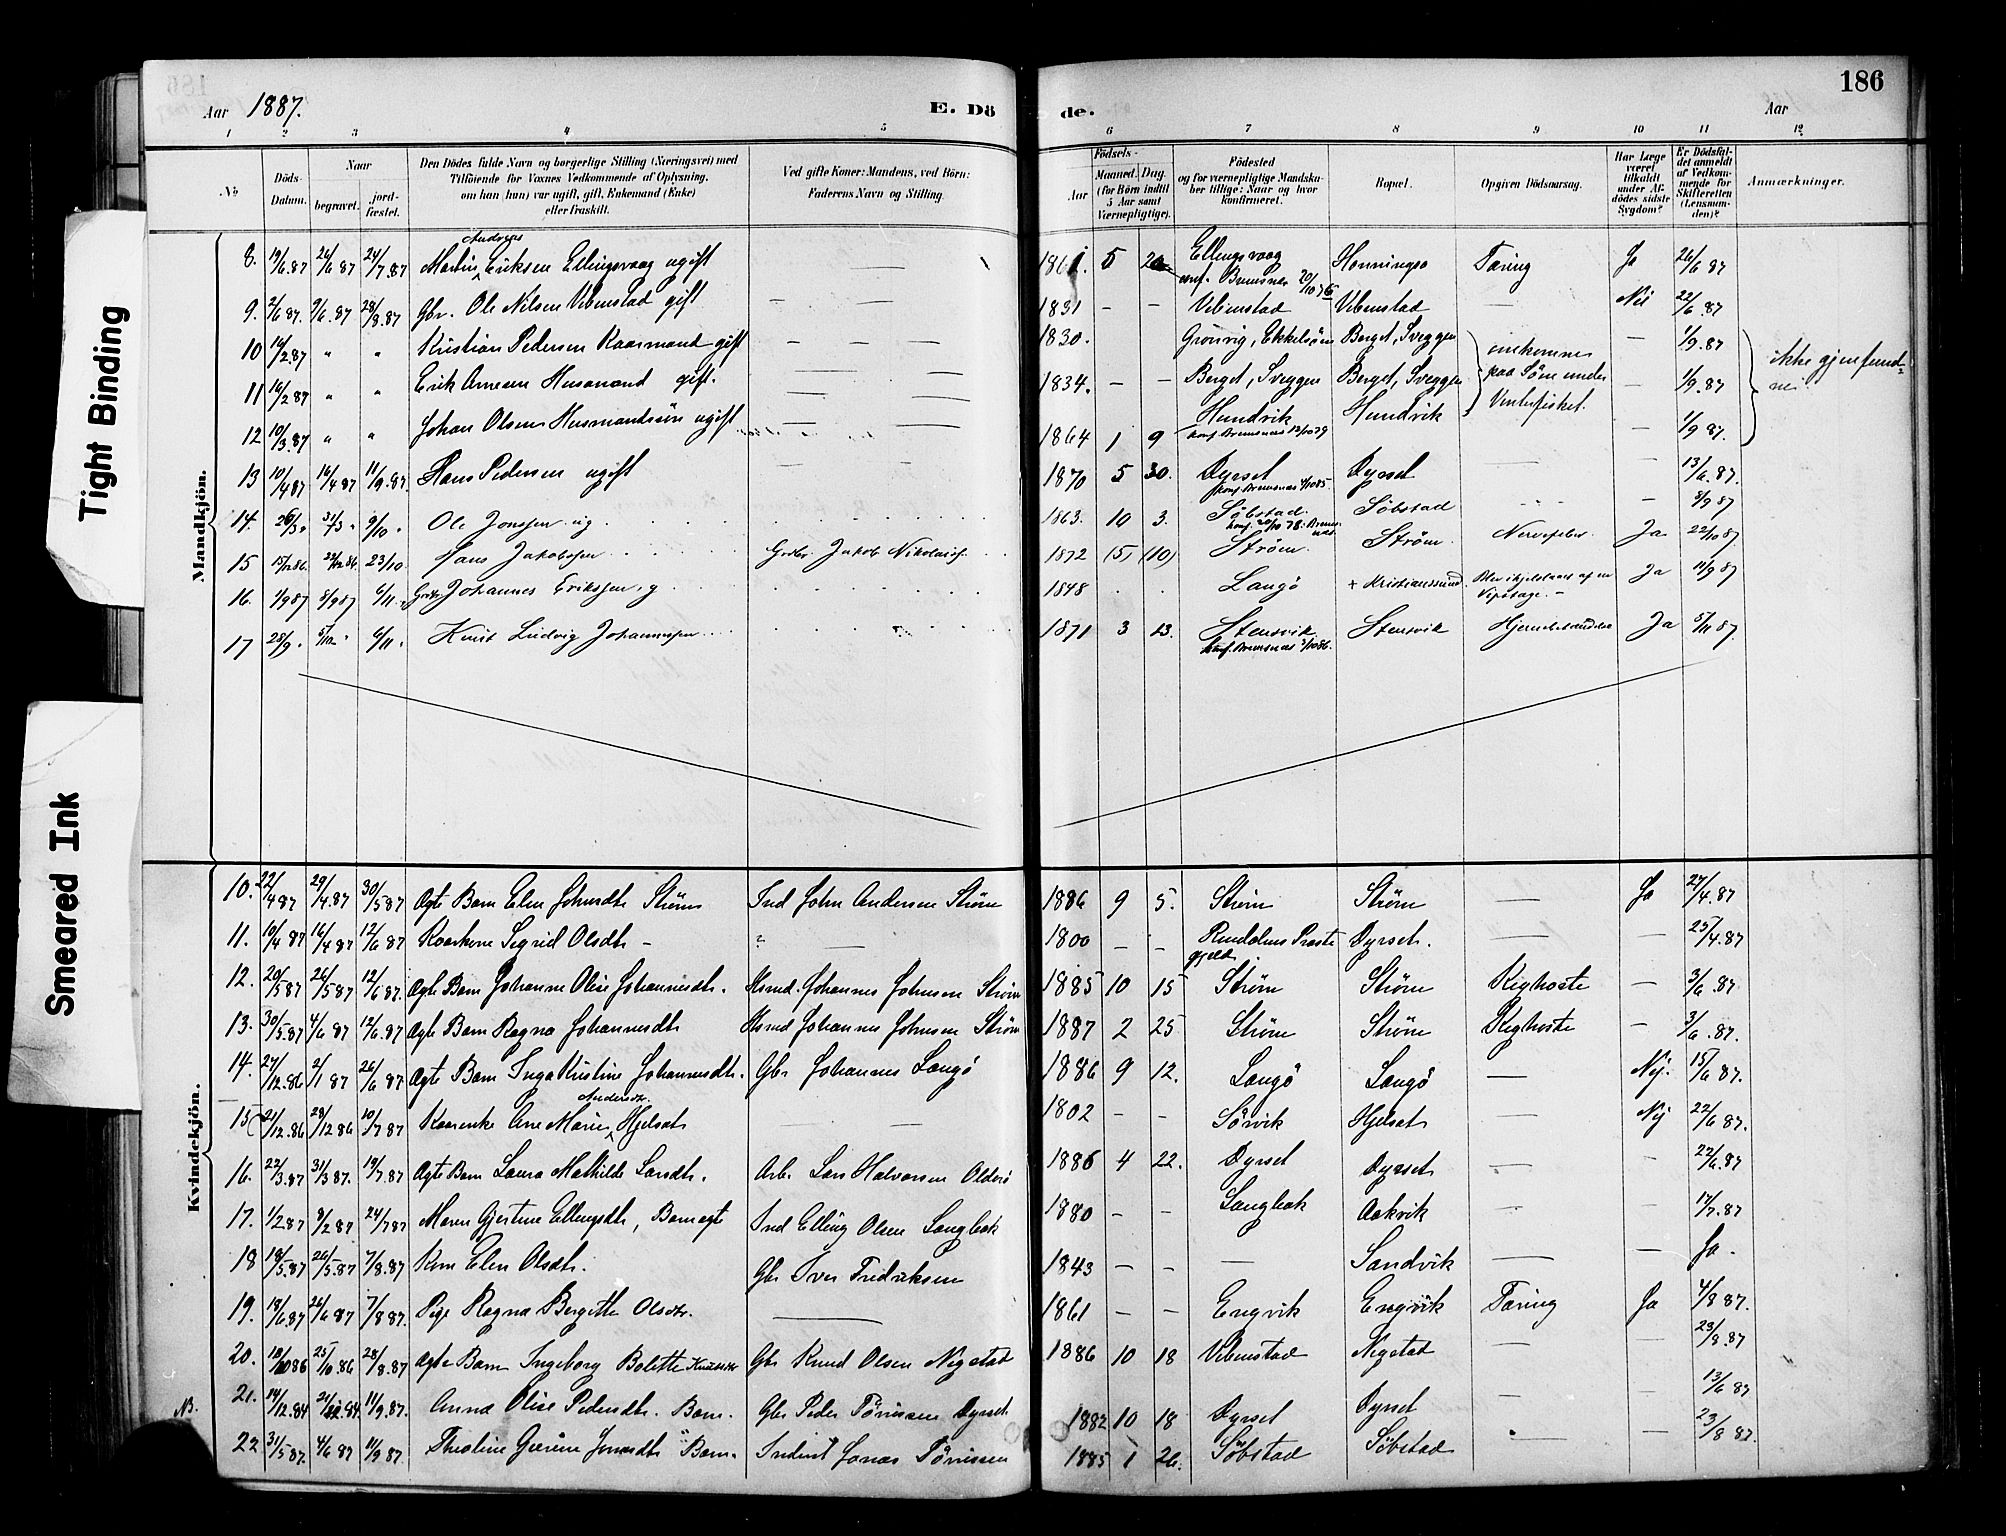 186
Aar 1887. E. Dö de. Aar
1 2 3 4 5 6 7 8 9 10 11 12
No
Döds-Datum.
Naar begravet. jordfæstet.
Den Dödes fulde Navn og borgerlige Stilling (Næringsvei) med Tilföiende for Voxnes Vedkommende af Oplysning, om han (hun) var ugift, gift, Enkemand (Enke) eller fraskilt.
Ved gifte Koner: Mandens, ved Börn: Faderens Navn og Stilling.
Födsels- Aar Maaned. Dag. (for Börn indtil 5 Aar samt Værnepligtige).
Födested og for værnepligtige Mandskaber tillige: Naar og hvor konfirmeret.
Bopæl.
Opgiven Dödsaarsag.
Har Læge været tilkaldt under Afdödes sidste Sygdom?
Er Dödsfaldet anmeldt af Vedkommende for Skifteretten (Lensmanden)?
Anmærkninger.
Tight Binding
Smeared Ink
Mandkjön.
8. 19/6.87 26/6 87 24/7.87 Martin Andreas Eriksen Ellingsvaag ugift 1861. 5 Ellingsvaag conf. Bremsnes Honningsø Tæring Ja 26/6 87
9. 2/6 87. 9/6.87 28/8.87 Gbr. Ole Nilsen Vebenstad gift — — 1831 – – Vebenstad Vebenstad — Nei 22/6.87
10 16/2.87 " " Kristian Pedersen Kaarmand gift — — — 1830. Grönvig, Ekkelsöen Berget, Sveggen omkomne paa Søen under Vinterfisket. — 1/9.87 ikke gjenfundne
11 16/2 87 " " Erik Arnesen Husmand gift. — — 1834. – – Berget, Sveggen Berget, Sveggen — 1/9.87
12 10/3.87 " " Johan Olsen Husmandssön ugift — — 1864 1 9 Hundvik konf. Bremsnes 12/10 79 Hundvik — 1/9 87.
13 10/4 87 16/4 87 11/9.87. Hans Pedersen ugift — — 1870 5 30. Dyrset konf. Bremsnes 4/10 85. Dyrset — — 13/6.87.
14. 26/3 " 31/3 " 9/10 " Ole Jonssen ug 1863. 10 3. Søbstad. konf. 20/10 78. Bremsnes Søbstad " " — 8/9 87
15 15/12 86. 22/12 86. 23/10 Hans Jakobssen Grdbr. Jakob Nikolais. 1872 (5) (10) Strøm. Strøm. Nervefeber Ja 22/10 87.
16. 1/9 87 8/9 87 6/11. Grdbr Johannes Erikssen, g 1848 Langö + Kristianssund. Blev ihjelslaaet af en Ja 11/9 87
17 28/9. 5/10 " 6/11. Knut Ludvig Johannessen 1871 3 13. Stensvik konf. Bremsnes 3/10 86. Stensvik Ja 5/11 87.
Kvindekjön.
10. 22/4 87 29/4.87 30/5 87 Ægte Barn Elen Johnsdtr Strøm Ind John Andersen Strøm 1886 9 5. Strøm Strøm — Ja 27/4.87
11. 10/4 87 16/4 87 12/6 87 Kaarkone Sigrid Olsdtr – ? — 1800 – – Rendalens Præstegjeld Dyrset. — — 25/4.87
12. 20/5 87 26/5 87 12/6 87. Ægte Barn Johanne Olise Johannesdtr. Hsmd. Johannes Johnsen Strøm 1885 10 15 Strøm Strøm Kighoste — 3/6.87
13. 30/5.87 4/6 87 12/6.87 Ægte Barn Ragna Johannesdtr Hsmd Johannes Johnsen Strøm 1887 2 25 Strøm Strøm Kighoste — 3/6.87.
14. 27/12.86 2/1 87 26/6 87 Ægte Barn Inga Kristine Johannesdtr. Gbr Johannes Langö 1886 9 12. Langö Langö — Nej. 15/6 87.
15 21/12.86 29/12 86 10/7 87 Kaarenke Ane Marie Andersdtr. Hjelsæt — 1802 – – Sörvik Hjelsæt — Nej 22/6 87.
16. 22/3.87 31/3 87. 19/7.87 Ægte Barn Laura Mathilde Larsdtr. Arb. Lars Halvorsen Olderö 1886 4 22. Dyrset Dyrset — — 22/6.87
17. 1/2 87 8/2 87 24/7 87 Maren Gjertine Ellingsdtr, Barn ægte Ind Elling Olsen Langbak 1880 – – Langbak Aakvik — — 17/7.87
18 18/5.87 26/5.87 7/8.87 Kone Elen Olsdtr. Gbr Iver Fredriksen 1843 – – — Sandvik — — Ja.
19. 18/6.87 26/6 87 7/8 87. Pige Ragna Bergitte Olsdtr. — 1861 – – Engvik Engvik Tæring Ja 4/8 87.
20. 18/10 86 25/10.86 28/8.87 Ægte Barn Ingeborg Bolette Knudsdtr Gbr Knud Olsen Negstad 1886 10 18 Vebenstad Negstad — — 23/8.87
NB. 21. 14/12.84 21/12 84. 11/9.87. Anna Olise Pedersdtr. Barn. Gbr Peder Tönnesen Dyrset 1882 10 18 Dyrset Dyrset — — 13/6 87
22 31/5 87. 4/6 87 11/9 87. Jonasdtr " Barn. Inderst Jonas Tönnesen 1885 1 26. Söbstad Söbstad — — 23/8 87.